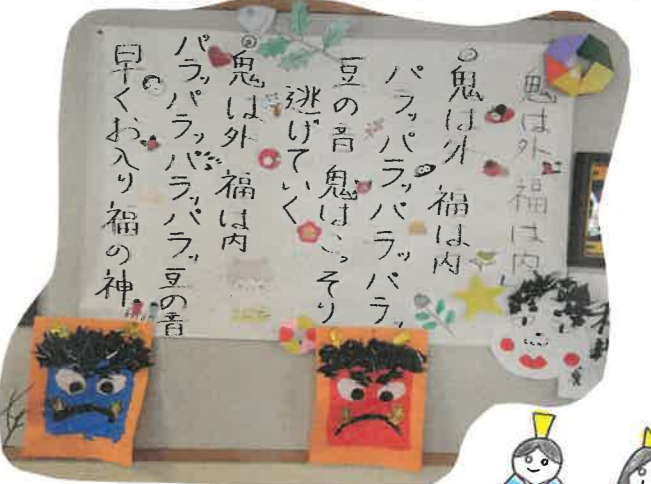 鬼は外 福は内
鬼は外 福は内
パラッパラッパラッパラッ
豆の音 鬼はこっそり
逃げていく
鬼は外 福は内
パラッパラッパラッパラッ豆の音
早くお入り福の神